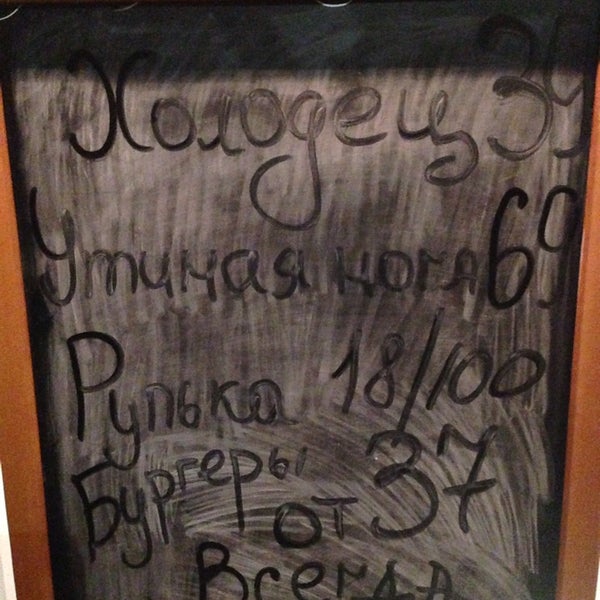 Холодец 39
Утиная нога 69
Рулька 18/100
Бургеры
от 37
Всегда